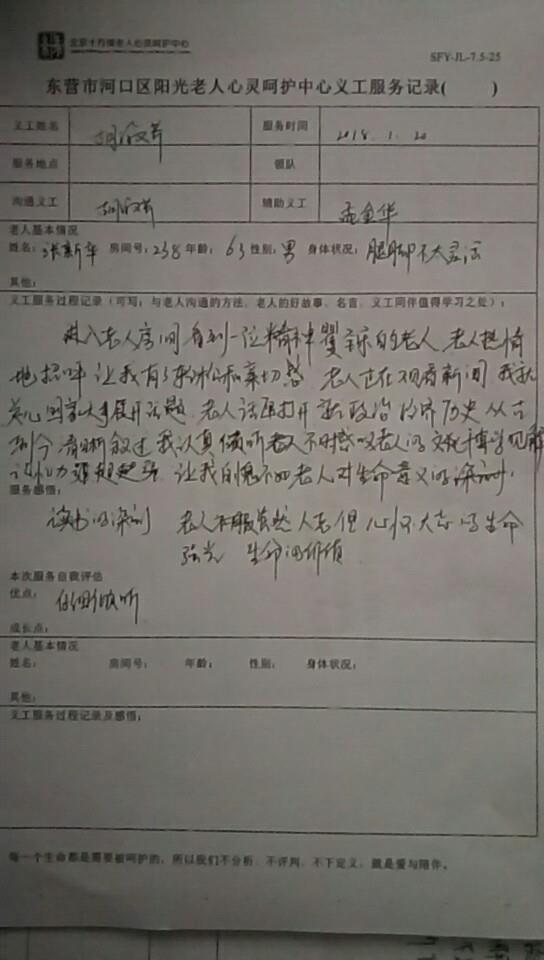 北京十方缘老人心灵呵护中心
SFY-JL-7.5-25
东营市河口区阳光老人心灵呵护中心义工服务记录( )
义工姓名 服务时间 2018.1.20
服务地点 领队
沟通义工 辅助义工 孟金华
老人基本情况
姓名:张新华 房间号:238 年龄:63 性别:男 身体状况:腿脚不太灵活
其他:
义工服务过程记录(可写:与老人沟通的方法、老人的好故事、名言、义工同伴值得学习之处):
进入老人房间看到一位精神矍铄的老人 老人热情
地招呼 让我有了 和亲切感 老人正在观看新闻 我就
关心国家大事展开话题 老人话匣打开 政治经济历史从古
到今 清晰叙述 我认真倾听老人 不时感叹老人的文化博学见解
记忆力 让我自愧不如老人对生命意义的深刻
服务感悟:
读书的深刻 老人不服 虽然人老但心怀大志的生命
生命的价值
本次服务自我评估
优点: 倾听
成长点:
老人基本情况
姓名: 房间号: 年龄: 性别: 身体状况:
其他:
义工服务过程记录及感悟:
每一个生命都是需要被呵护的,所以我们不分析、不评判、不下定义,就是爱与陪伴。